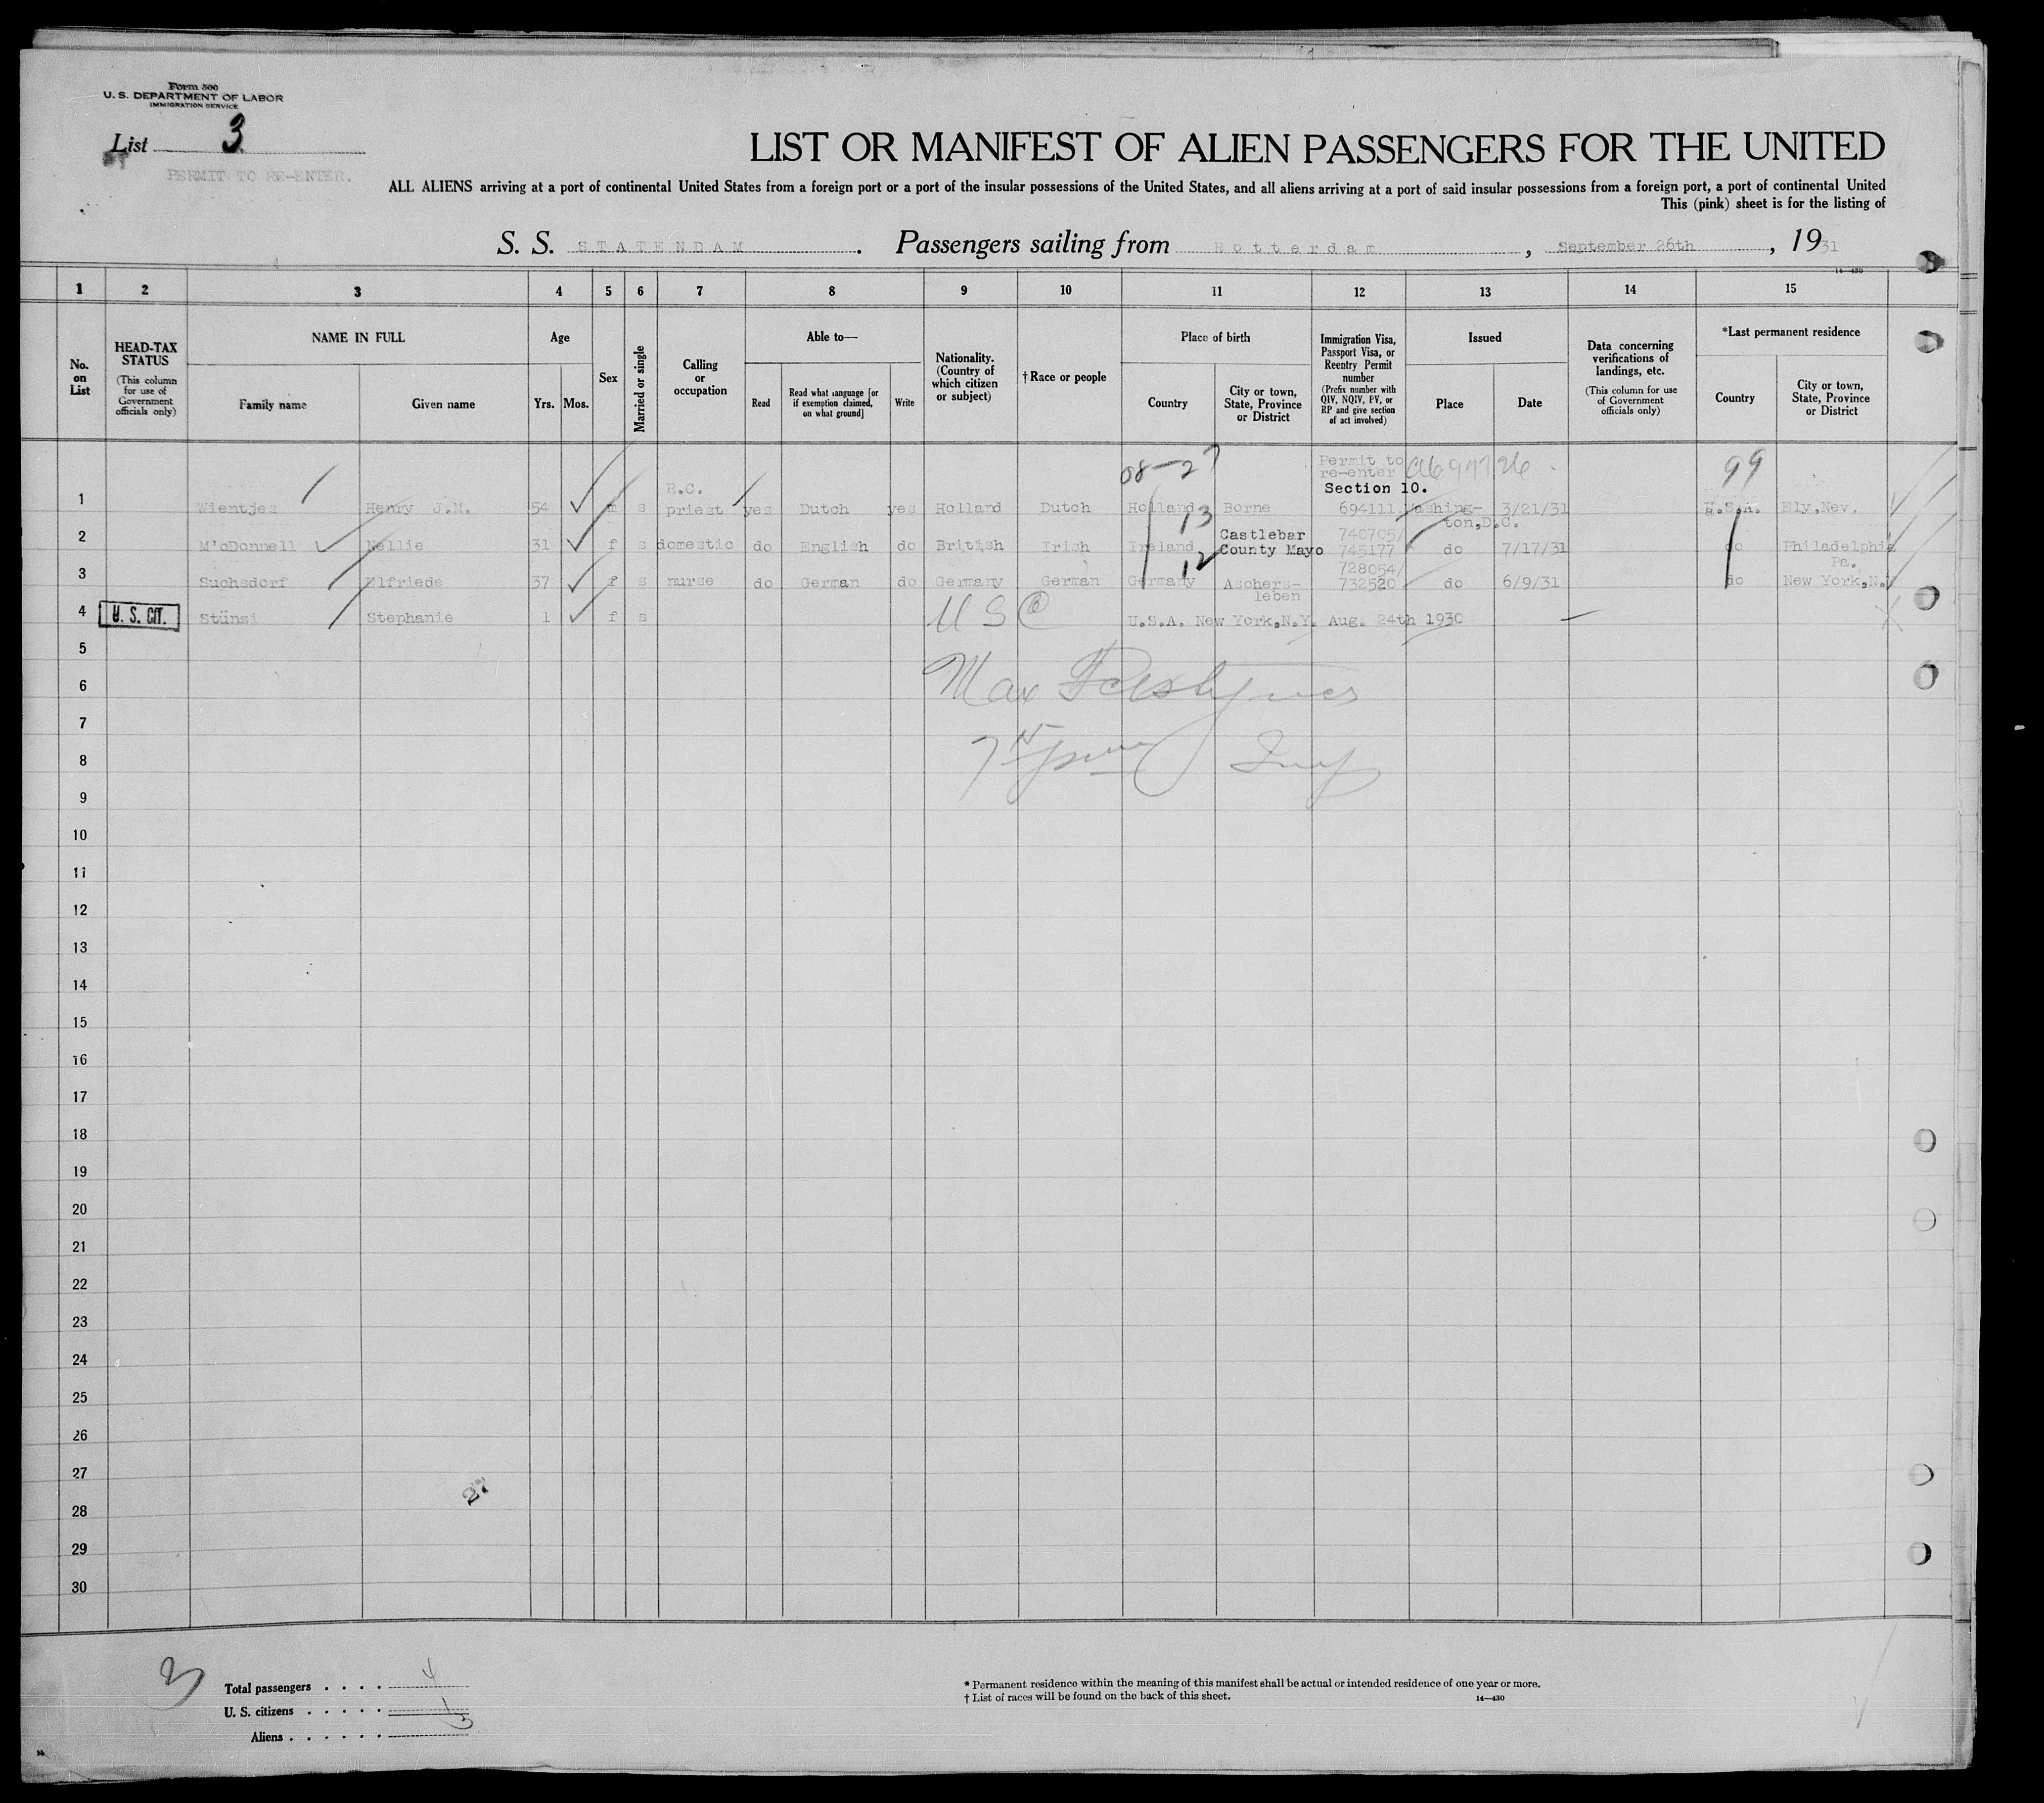 Form 500
U. S. DEPARTMENT OF LABOR
IMMIGRATION SERVICE
List 3
PERMIT TO RE-ENTER.
LIST OR MANIFEST OF ALIEN PASSENGERS FOR THE UNITED
ALL ALIENS arriving at a port of continental United States from a foreign port or a port of the insular possessions of the United States, and all aliens arriving at a port of said insular possessions from a foreign port, a port of continental United
This (pink) sheet is for the listing of
S. S. STATENDAM. Passengers sailing from Rotterdam, September 26th, 1931
14—430
1 2 3 4 5 6 7 8 9 10 11 12 13 14 15
No. on List
HEAD-TAX STATUS
(This column for use of Government officials only)
NAME IN FULL
Family name Given name
Age
Yrs. Mos.
Sex
Married or single
Calling or occupation
Able to—
Read
Read what language [or if exemption claimed, on what ground]
Write
Nationality. (Country of which citizen or subject)
†Race or people
Place of birth
Country
City or town, State, Province or District
Immigration Visa, Passport Visa, or Reentry Permit number
(Prefix number with QIV, NQIV, PV, or RP and give section of act involved)
Issued
Place Date
Data concerning verifications of landings, etc.
(This column for use of Government officials only)
*Last permanent residence
Country
City or town, State, Province or District
08-27
Permit to
re-enter
99
Section 10.
1 Wientjes Henry J.M. 54 m s R.C. priest yes Dutch yes Holland Dutch Holland Borne 694111 Washing-ton,D.C. 3/21/31 U.S.A. Ely,Nev.
13
2 M'cDonnell Nellie 31 f s domestic do English do British Irish Ireland Castlebar County Mayo 740705/ 745177 do 7/17/31 do Philadelphia Pa.
12
3 Suchsdorf Elfriede 37 f s nurse do German do Germany German Germany Aschers-leben 728054/ 732520 do 6/9/31 do New York,N.Y.
4 U. S. CIT. Stünzi Stephanie 1 f s USC U.S.A. New York,N.Y. Aug. 24th 1930
5
Max
6
7
8
9
10
11
12
13
14
15
16
17
18
19
20
21
22
23
24
25
26
27
27
28
29
30
3
Total passengers . . . . 4
U. S. citizens . . . . . 1
Aliens . . . . . . 3
* Permanent residence within the meaning of this manifest shall be actual or intended residence of one year or more.
† List of races will be found on the back of this sheet.
14—430